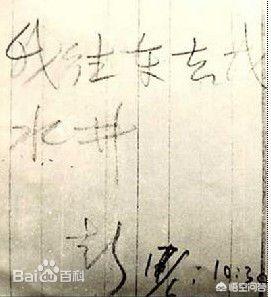 我往东去找
水井
彭 17/6:10:30
Bai百科
悟空问答